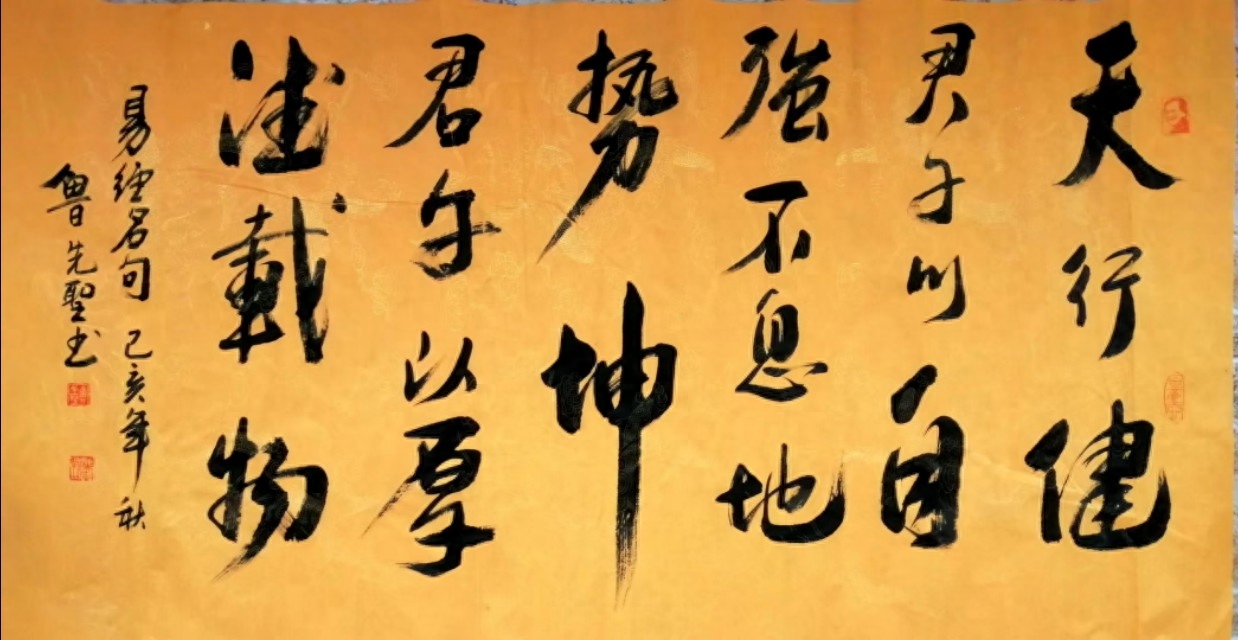 天行健
君子以自
強不息地
势坤
君子以厚
德載物
易經名句 己亥年秋
魯先聖书